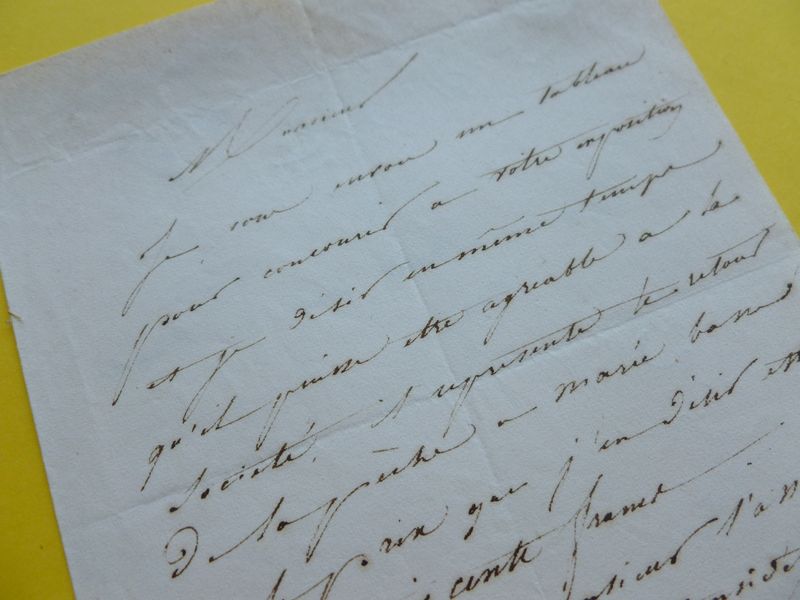 Monsieur
Je vous envoie un tableau
pour concourir a votre exposition
et je désir en même temps
qu'il puisse etre agreable a la
societé. il represente le retour
de la pêche a marée basse
prix que j'en désir est
cents francs
Monsieur l'a